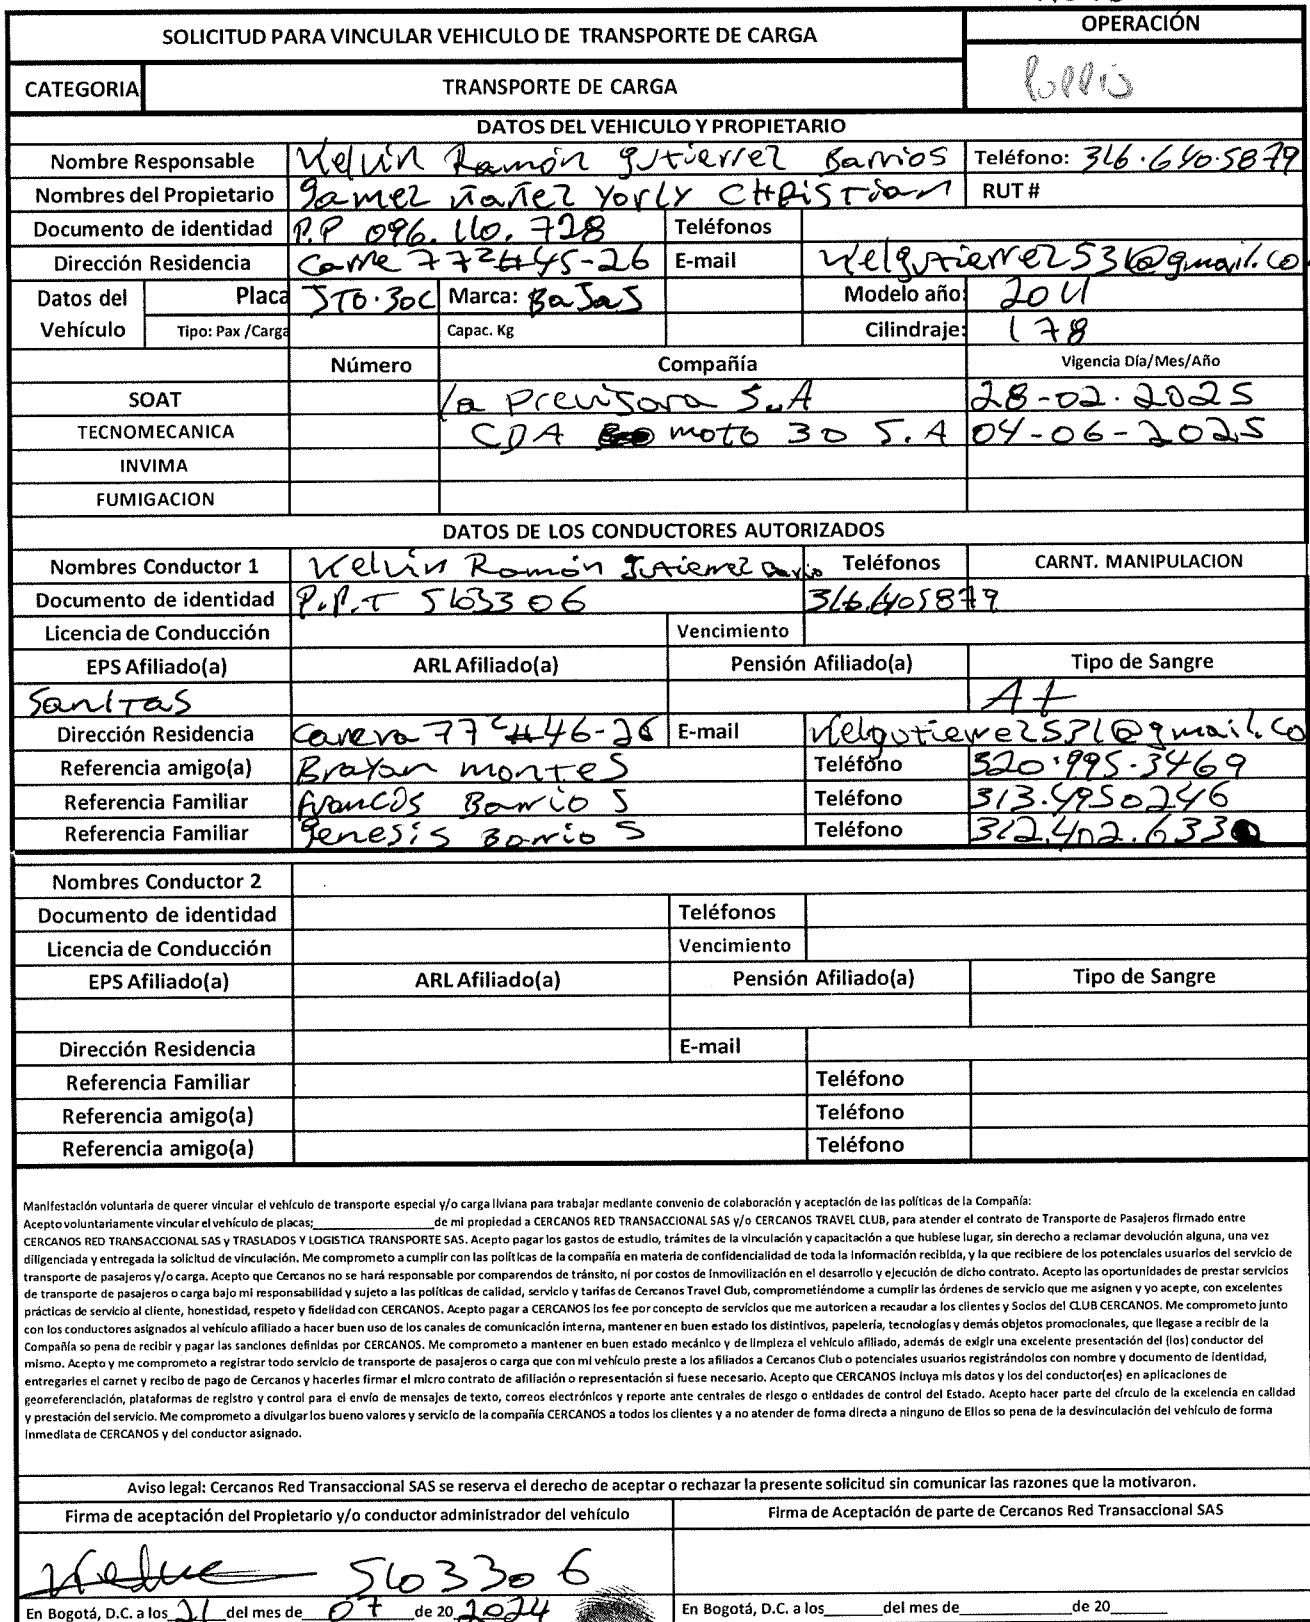 OPERACIÓN
SOLICITUD PARA VINCULAR VEHICULO DE TRANSPORTE DE CARGA
CATEGORIA TRANSPORTE DE CARGA
DATOS DEL VEHICULO Y PROPIETARIO
Nombre Responsable Kelvin Ramón gutierrez Barrios Teléfono: 316.640.5879
Nombres del Propietario gamez ñañez Yorly CHRISTian RUT #
Documento de identidad P.P 096.110.728 Teléfonos
Dirección Residencia Carre 77 #45-26 E-mail Kelgutierrez531@gmail.co
Datos del Vehículo Placa JTO.30C Marca: BaJaJ Modelo año: 2011
Tipo: Pax /Carga Capac. Kg Cilindraje: 178
Número Compañía Vigencia Día/Mes/Año
SOAT la Previsora S.A 28-02.2025
TECNOMECANICA CDA moto 30 S.A 04-06-2025
INVIMA
FUMIGACION
DATOS DE LOS CONDUCTORES AUTORIZADOS
Nombres Conductor 1 Kelvin Ramón gutierrez Teléfonos CARNT. MANIPULACION
Documento de identidad P.P.T 5403306 316.6405879
Licencia de Conducción Vencimiento
EPS Afiliado(a) ARL Afiliado(a) Pensión Afiliado(a) Tipo de Sangre
SaniTas A+
Dirección Residencia Carera 77c #46-26 E-mail Kelgutierrez531@gmail.co
Referencia amigo(a) Brayan monTeS Teléfono 320.995.3469
Referencia Familiar francis Barrios Teléfono 313.4950246
Referencia Familiar genesis Barrios Teléfono 312.402.633
Nombres Conductor 2
Documento de identidad Teléfonos
Licencia de Conducción Vencimiento
EPS Afiliado(a) ARL Afiliado(a) Pensión Afiliado(a) Tipo de Sangre
Dirección Residencia E-mail
Referencia Familiar Teléfono
Referencia amigo(a) Teléfono
Referencia amigo(a) Teléfono
Manifestación voluntaria de querer vincular el vehículo de transporte especial y/o carga liviana para trabajar mediante convenio de colaboración y aceptación de las políticas de la Compañía:
Acepto voluntariamente vincular el vehículo de placas;____________________de mi propiedad a CERCANOS RED TRANSACCIONAL SAS y/o CERCANOS TRAVEL CLUB, para atender el contrato de Transporte de Pasajeros firmado entre
CERCANOS RED TRANSACCIONAL SAS y TRASLADOS Y LOGISTICA TRANSPORTE SAS. Acepto pagar los gastos de estudio, trámites de la vinculación y capacitación a que hubiese lugar, sin derecho a reclamar devolución alguna, una vez
diligenciada y entregada la solicitud de vinculación. Me comprometo a cumplir con las políticas de la compañía en materia de confidencialidad de toda la información recibida, y la que recibiere de los potenciales usuarios del servicio de
transporte de pasajeros y/o carga. Acepto que Cercanos no se hará responsable por comparendos de tránsito, ni por costos de inmovilización en el desarrollo y ejecución de dicho contrato. Acepto las oportunidades de prestar servicios
de transporte de pasajeros o carga bajo mi responsabilidad y sujeto a las políticas de calidad, servicio y tarifas de Cercanos Travel Club, comprometiéndome a cumplir las órdenes de servicio que me asignen y yo acepte, con excelentes
prácticas de servicio al cliente, honestidad, respeto y fidelidad con CERCANOS. Acepto pagar a CERCANOS los fee por concepto de servicios que me autoricen a recaudar a los clientes y Socios del CLUB CERCANOS. Me comprometo junto
con los conductores asignados al vehículo afiliado a hacer buen uso de los canales de comunicación interna, mantener en buen estado los distintivos, papelería, tecnologías y demás objetos promocionales, que llegase a recibir de la
Compañía so pena de recibir y pagar las sanciones definidas por CERCANOS. Me comprometo a mantener en buen estado mecánico y de limpieza el vehículo afiliado, además de exigir una excelente presentación del (los) conductor del
mismo. Acepto y me comprometo a registrar todo servicio de transporte de pasajeros o carga que con mi vehículo preste a los afiliados a Cercanos Club o potenciales usuarios registrándolos con nombre y documento de identidad,
entregarles el carnet y recibo de pago de Cercanos y hacerles firmar el micro contrato de afiliación o representación si fuese necesario. Acepto que CERCANOS incluya mis datos y los del conductor(es) en aplicaciones de
georreferenciación, plataformas de registro y control para el envío de mensajes de texto, correos electrónicos y reporte ante centrales de riesgo o entidades de control del Estado. Acepto hacer parte del círculo de la excelencia en calidad
y prestación del servicio. Me comprometo a divulgar los bueno valores y servicio de la compañía CERCANOS a todos los clientes y a no atender de forma directa a ninguno de Ellos so pena de la desvinculación del vehículo de forma
inmediata de CERCANOS y del conductor asignado.
Aviso legal: Cercanos Red Transaccional SAS se reserva el derecho de aceptar o rechazar la presente solicitud sin comunicar las razones que la motivaron.
Firma de aceptación del Propietario y/o conductor administrador del vehículo Firma de Aceptación de parte de Cercanos Red Transaccional SAS
5403306
En Bogotá, D.C. a los 21 del mes de 07 de 20 2024 En Bogotá, D.C. a los______del mes de____________de 20____